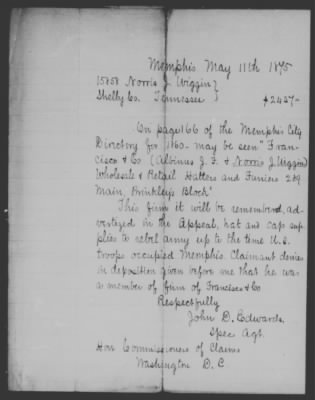 Memphis May 11th 1875
15858 Norris J. Wiggin }
Shelby Co. Tennessee } $2457-
On page 166 of the Memphis City
Directory for 1860- may be seen "Fran-
cisco & Co (Albinus J. F. & Norris J. Wiggin)
Wholesale & Retail Hatters and Furriers 289
Main, Brinkley's Block"
This firm it will be remembered, ad-
vertized in the Appeal, hat and cap sup-
plies to rebel army up to the time U.S.
troops occupied Memphis. Claimant denies
in deposition given before me that he was
a member of firm of Francisco & Co
Respectfully
John D. Edwards.
Spec Agt.
Hon Commissioners of Claims
Washington D. C